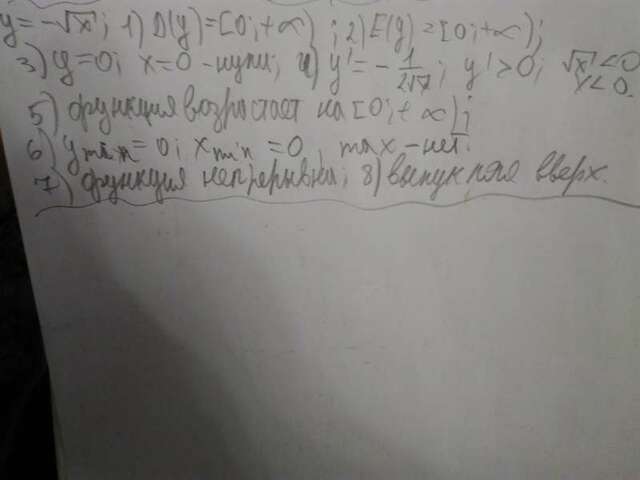 y = -√x; 1) D(y) = [0; +∞); 2) E(y) = [0; +∞);
3) y = 0; x = 0 - нули; 4) y' = - 1/2√x; y' > 0; √x < 0
x < 0.
5) функция возрастает на [0; +∞);
6) y min = 0; x min = 0, max - нет.
7) функция непрерывна; 8) выпуклая вверх.